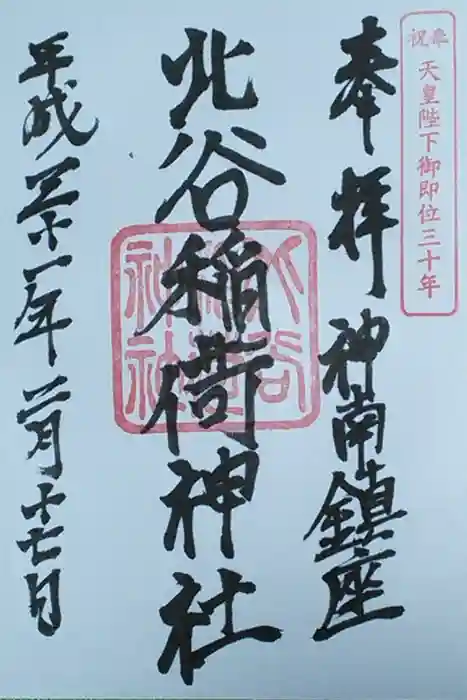 奉祝
天皇陛下御即位三十年
奉拝 神南鎮座
北谷稲荷神社
北谷
神社
平成三十一年二月十七日